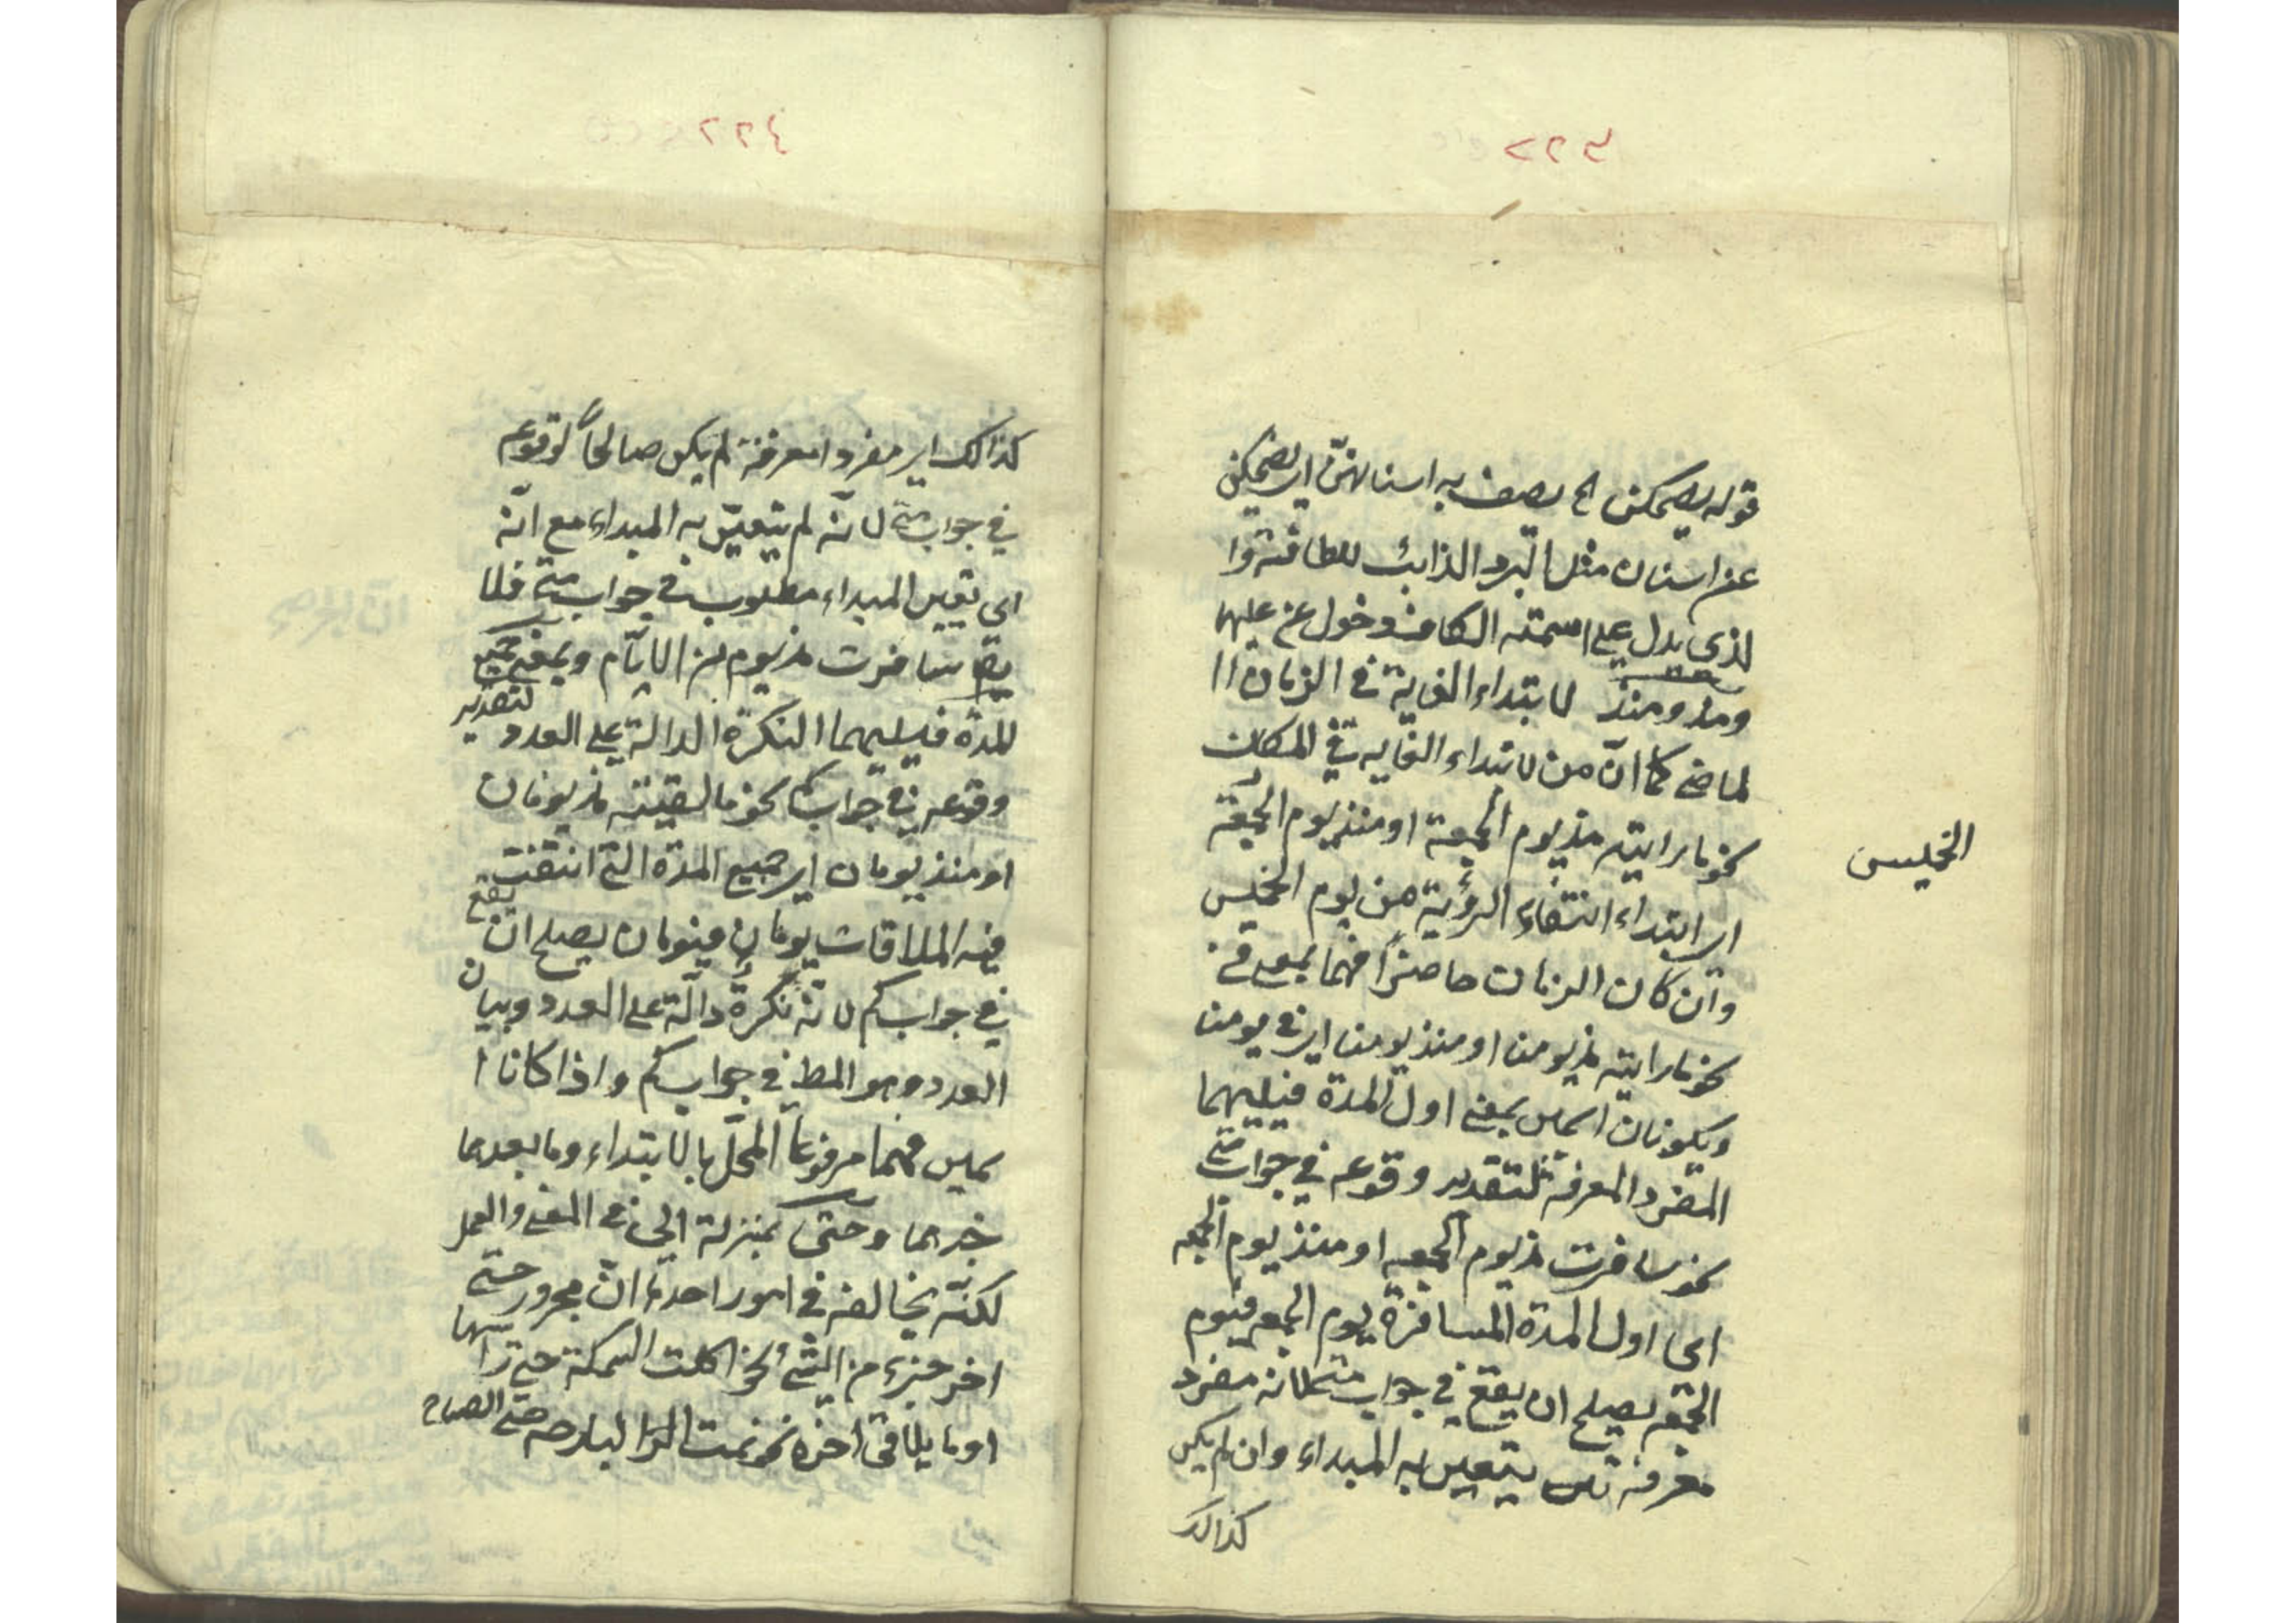 ٢٢٣
قوله يضحكن الخ يصف به اسنانهنّ اى يضحكن
عن اسنان مثل البرد الذائب للطافته وا
لذى يدل على اسميّته الكاف دخول عن عليها
ومذ ومنذ لابتداء الغاية فى الزمان ا
لماضى كما انّ من لابتداء الغاية فى المكان
نحو ما رايته مذ يوم الجمعة او منذ يوم الجمعة
اى ابتداء انتفاء الرؤية من يوم الخميس
الخميس
وان كان الزمان حاضراً فهما بمعنى فى
نحو ما رايته مذ يومنا او منذ يومنا اى فى يومنا
ويكونان اسمين بمعنى اول المدة فيليهما
المفرد المعرفة لتقدير وقوعه فى جواب متى
نحو سافرت مذ يوم الجمعه او منذ يوم الجمعه
اى اول المدة المسافرة يوم الجمعه فيوم
الجمعه يصلح ان يقع فى جواب متى لانه مفرد
معرفة يتعين به المبداء وان لم يكن
كذالك
٢٢٤
كذالك اى مفردا معرفة لم يكن صالحاً لوقوعه
فى جواب متى لانّه لم يتعيّن به المبداء مع انّه
اى تعين المبداء مطلوب فى جواب متى فلا
يقا سافرت مذ يوم من الايّام وبمعنى جميع
للمدة فيليهما النكرة الدالة على العدد لتقدير
وقوعه فى جواب كم نحو ما لقيته مذ يومان
او منذ يومان اى جميع المدة التى انتفت
فيه الملاقات يومان فيومان يصلح ان يقع
فى جواب كم لانّه نكرة دالّة على العدد وبيان
العدد وهو المط فى جواب كم واذا كانا ا
سمين فهما مرفوعا المحلّ بالابتداء وما بعدهما
خبرهما وحتى بمنزلة الى فى المعنى والعمل
لكنّه يخالفه فى امور احدها انّ مجرور حتى
اخر جزء من الشئ نحو اكلت السمكة حتى راسها
او ما يلاقى اخره نحو نمت البارحه حتى الصباح